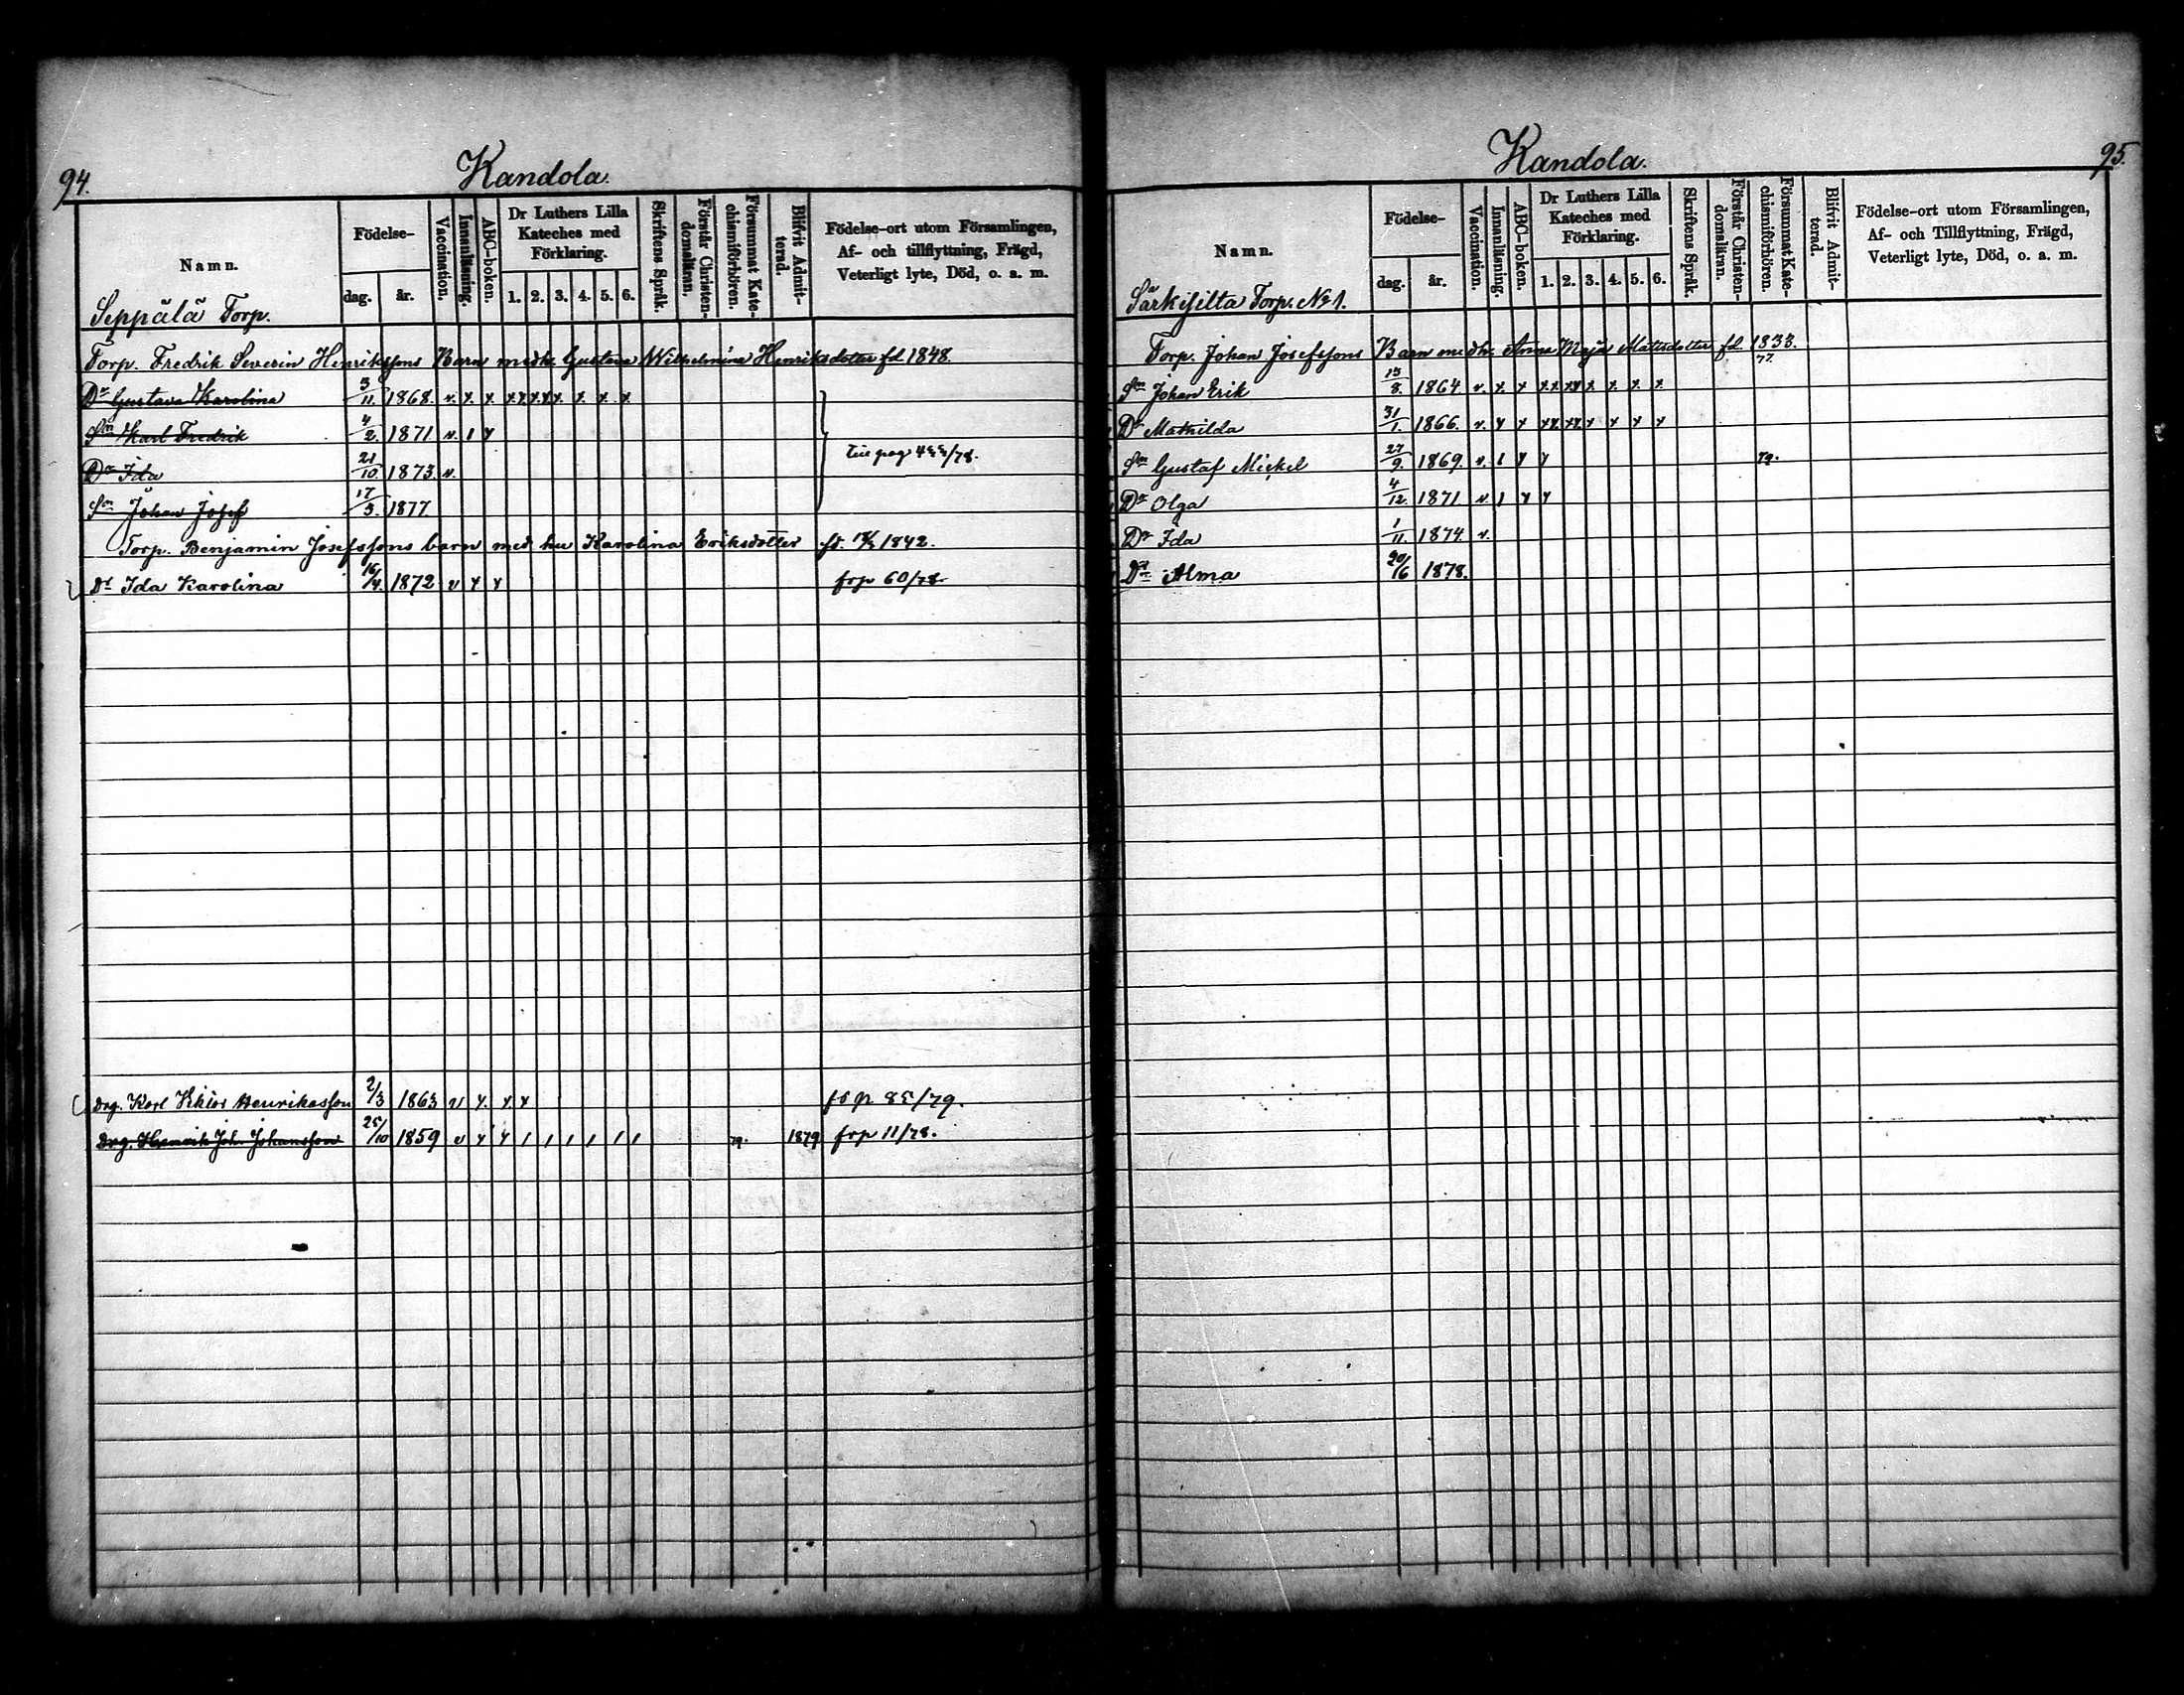 94.
Kandola.
Namn.
Födelse-
dag. år.
Vaccination.
Innanläsning.
ABC-boken.
Dr Luthers Lilla Kateches med Förklaring.
1. 2. 3. 4. 5. 6.
Skriftens Språk.
Förstår Christen-domsläran.
Försummat Kate-chismiförhören.
Blifvit Admit-terad.
Födelse-ort utom Församlingen,
Af- och tillflyttning, Frägd,
Veterligt lyte, Död, o. a. m.
Seppälä Torp.
Torp. Fredrik Severin Henrikssons Barn medh. Gustava Wilhelmina Henriksdotter fd. 1848.
Dr Gustava Karolina 3/11 1868. v. x. x. x x x x x. x. x.
Son Karl Fredrik 4/2. 1871 v. 1 y
Dr Ida 21/10 1873. v.
Son Johan Josef 17/3. 1877
Torp. Benjamin Josefssons barn med hu Karolina Eriksdotter fd. 1842.
Dr Ida Karolina 16/4. 1872 v y y frp 60/78.
Drg. Karl Viktor Henriksson 2/3 1863 v y. y. y frp 85/79.
Drg. Henrik Joh. Johansson 25/10 1859 v y y 1 1 1 1 1 1 79. 1879 frp 11/78.
95.
Kandola.
Namn.
Födelse-
dag. år.
Vaccination.
Innanläsning.
ABC-boken.
Dr Luthers Lilla Kateches med Förklaring.
1. 2. 3. 4. 5. 6.
Skriftens Språk.
Förstår Christen-domsläran.
Försummat Kate-chismiförhören.
Blifvit Admit-terad.
Födelse-ort utom Församlingen,
Af- och Tillflyttning, Frägd,
Veterligt lyte, Död, o. a. m.
Särkisilta Torp. No 1.
Torp. Johan Josefssons Barn medh. Anna Maja Mattsdotter fd. 1833.
Son Johan Erik 15/8. 1864. v. x. x x x x x x. x. x. x 77.
Dr Mathilda 31/1. 1866. v. y x x x x x x x x x
Son Gustaf Mickel 27/9. 1869. v. 1 y y 79.
Dr Olga 4/12. 1871. v. 1 y y
Dr Ida 1/11 1874. v.
Dr Alma 20/6 1878.